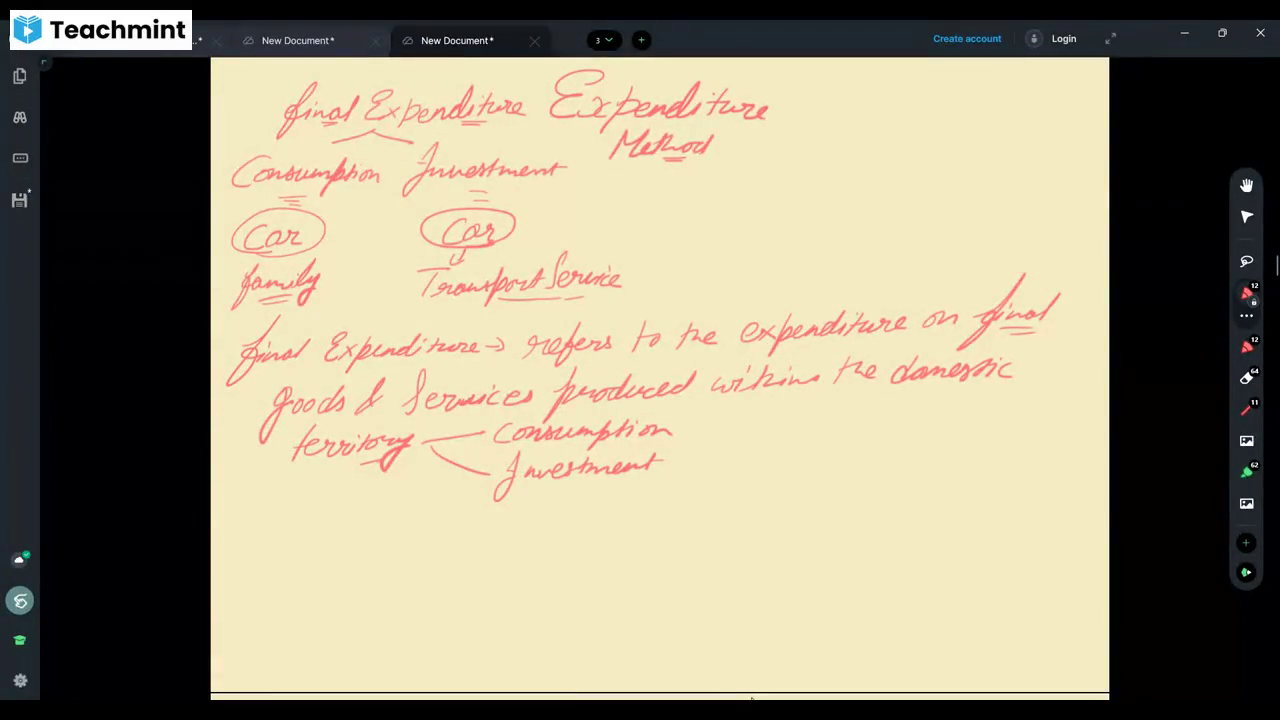 Teachmint
New Document*
New Document*
3
Create account
Login
final Expenditure Expenditure
Method
Consumption Investment
Car Car
family Transport Service
final Expenditure → refers to the expenditure on final
goods & Services produced within the domestic
territory Consumption
Investment
12
12
64
11
62